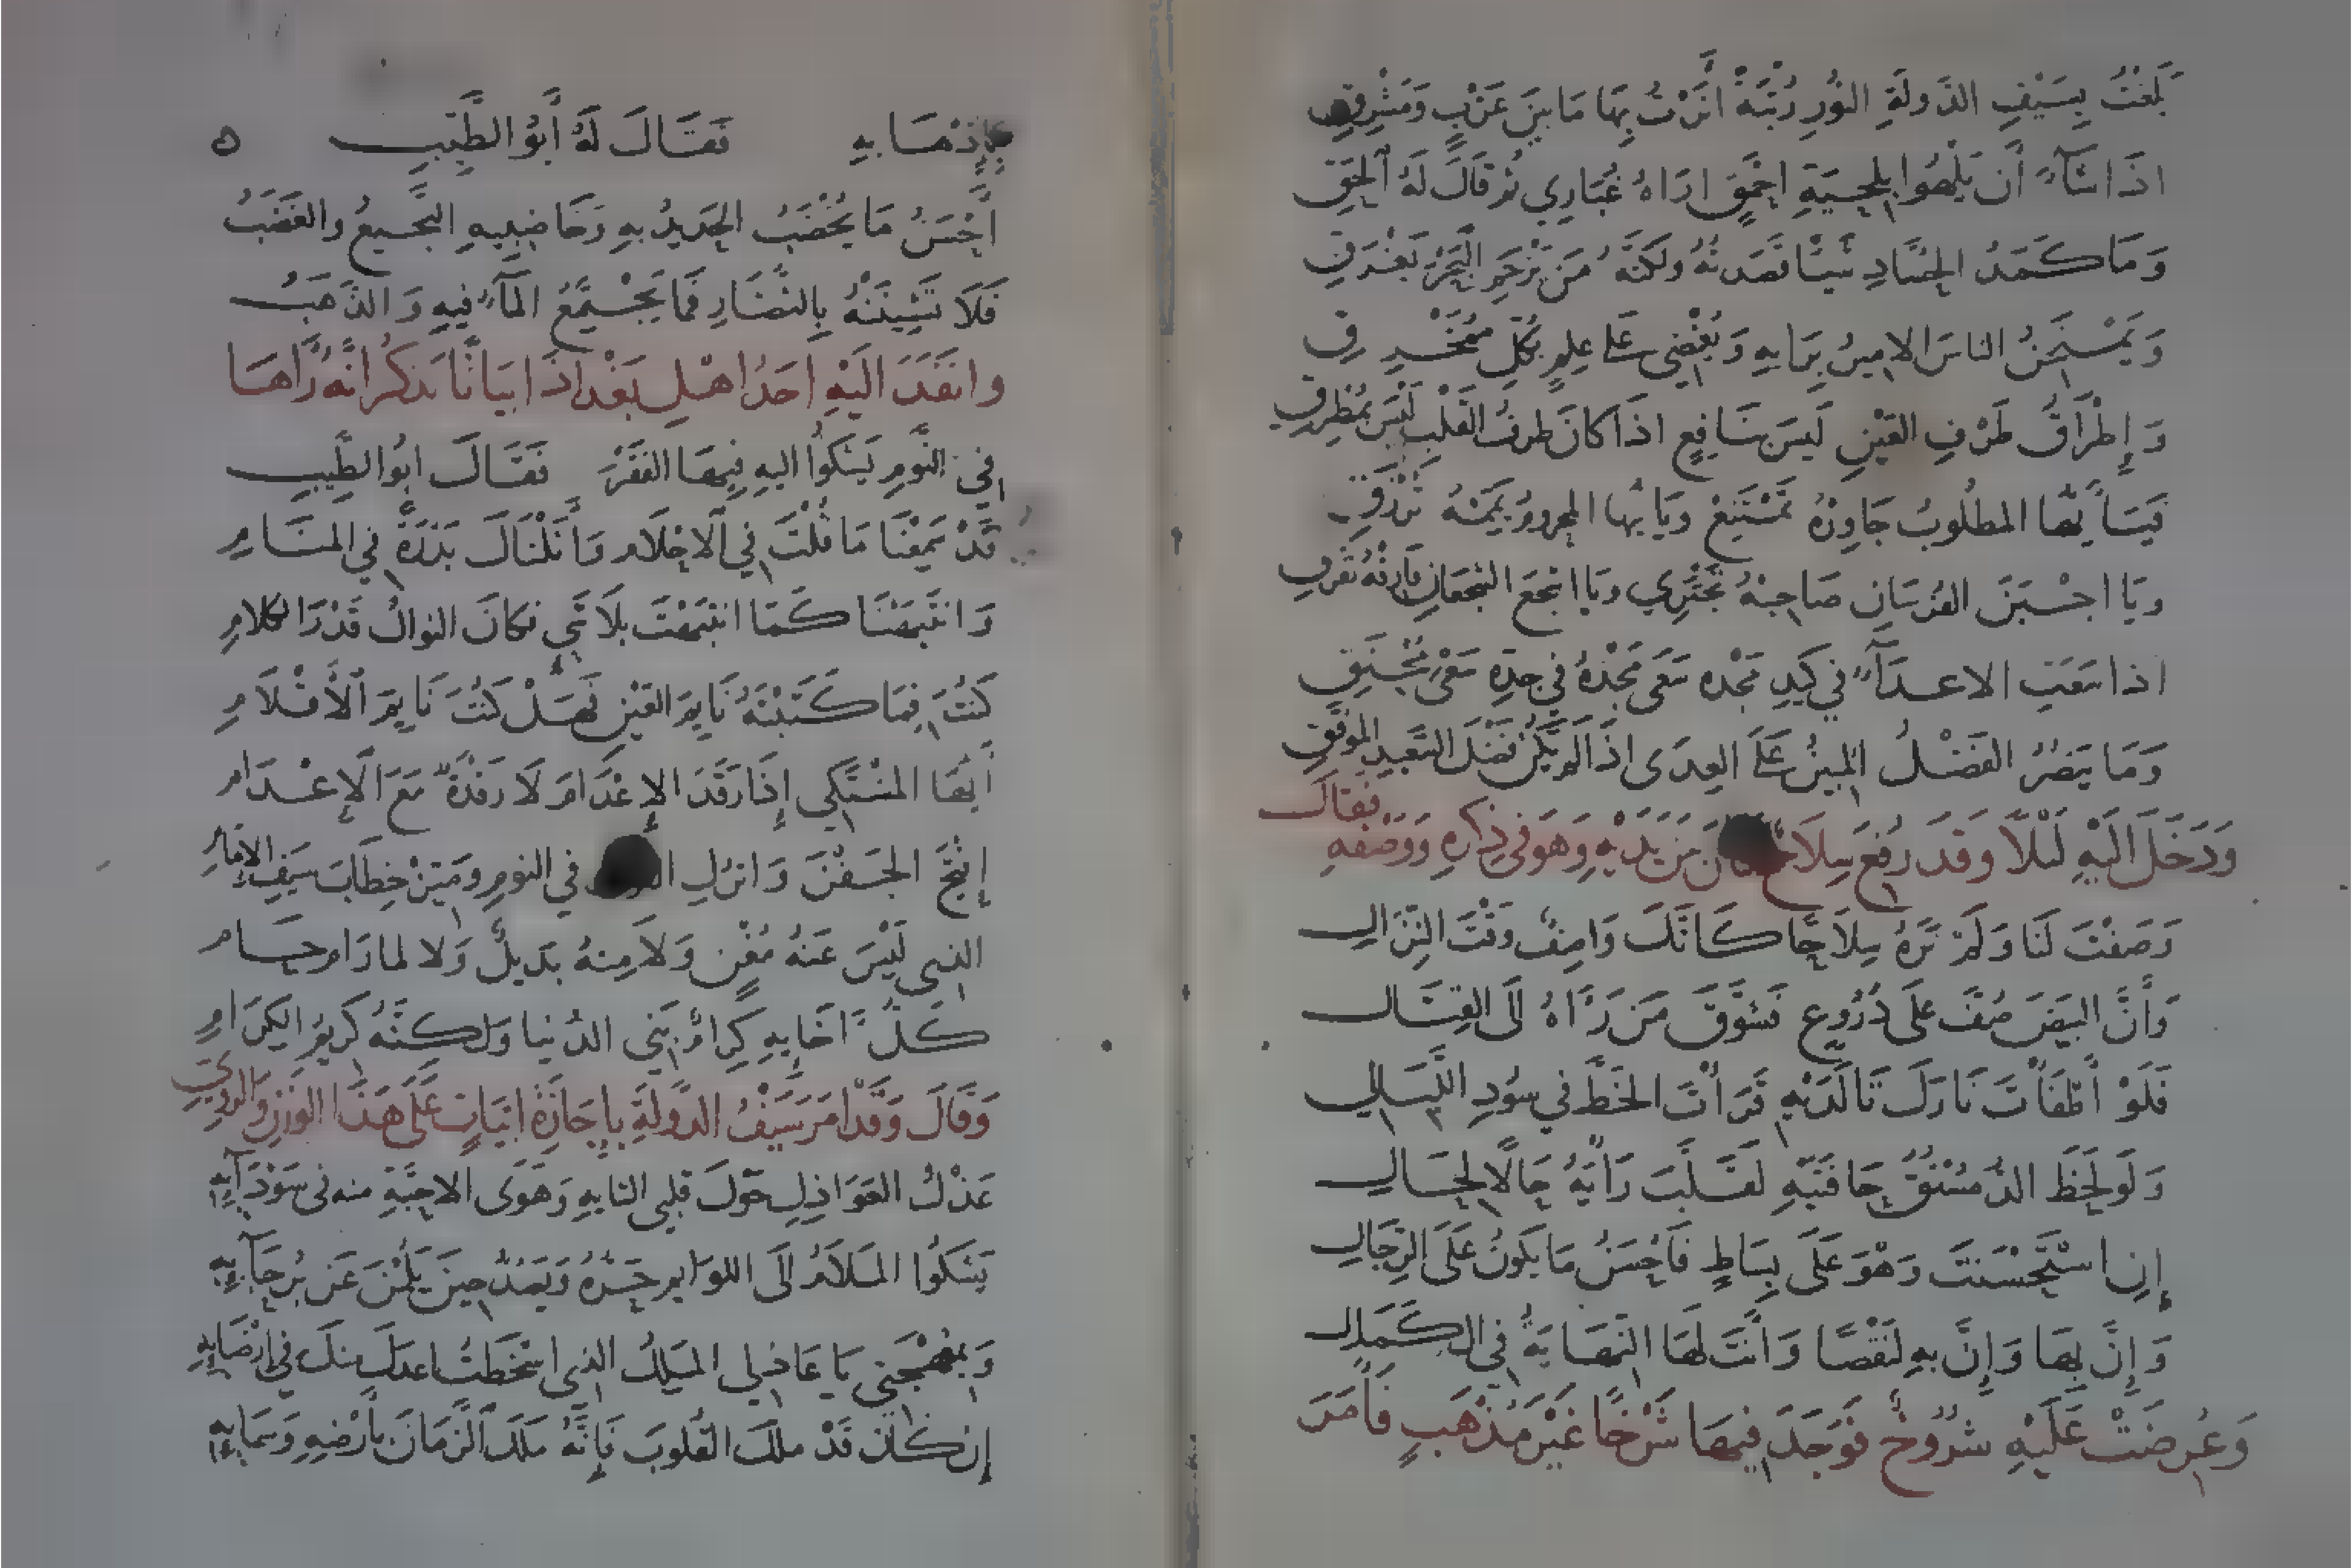 بَلَغْتُ بِسَيْفِ الدَّولَةِ النُّورِ رُتْبَةً اَنَرْتُ بِهَا مَا بَيْنَ غَرْبٍ وَمَشْرِقِ
اذَا شَآءَ أَن يَلْهُوا بِلِحيَةِ احْمَقٍ ارَاهُ غُبَارِي ثُمَّ قَالَ لَهُ الْحَقِ
وَمَا كَمَدُ الحُسَّادِ شَيْئًا قَصَدتُهُ ولَكِنَّهُ مَن يَزْحَمِ الْبَحْرَ يَغْرَقِ
وَيَمْتَحِنُ الناسَ الاميرُ بِرَايِهِ وَيُغْضِي عَلَى عِلمٍ بِكُلِّ مُمَخْرِقِ
وَإِطْرَاقُ طَرْفِ العَيْنِ لَيسَ بِنَافِعٍ اذَا كَانَ طَرفُ القَلْبِ لَيْسَ بِمُطْرِقِ
فَيَا أَيُّهَا المَطلُوبُ جَاوِرْهُ تَمْتَنِعْ وَيَا أَيُّها المحرومُ يَمِّمْهُ تُرْزَقِ
وَيَا اجْبَنَ الفُرسَانِ صَاحِبْهُ تَجْتَرِي وَيَا اشجَعَ الشجعَانِ فَارِقْهُ تَفْرَقِ
اذا سَعَتِ الاعدَآءُ في كَيدِ مَجْدِه سَعَى مَجْدُهُ في جدِّهِ سَعْيَ مُحْنَقِ
وَمَا يَنصُرُ الفَضْلُ المُبِينُ عَلَى العِدَى اذَا لَم يَكُن فَضْلَ السَّعِيدِ المُوَفَّقِ
وَدَخَلَ الَيْهِ لَيْلًا وَقَد رُفِعَ سِلَاحٌ كَانَ بَينَ يَدَيْهِ وَهوَ في ذِكرِهِ وَوَصْفِهِ فقالَ
وَصَفْتَ لَنَا وَلَمْ نَرَهُ سِلَاحًا كَانَكَ وَاصِفٌ وَقْتَ النِّزَالِ
وَأَنَّ البَيْضَ صُفَّ عَلَى دُرُوعٍ فَشَوَّقَ مَن رَآهُ الَى القِتَالِ
فَلَوْ أَطْفَأْتَ نَارَكَ تَا لَدَيْهِ قَرَأْتَ الخَطَّ في سُودِ اللَّيَالِي
وَلَو لَحَظَ الدُّمُسْتُقُ حَافَتَيْهِ لَقَلَّبَ رَأْيَهُ حَالًا لِحَالِ
إِنِ اسْتَحْسَنتَ وَهْوَ عَلَى بِسَاطٍ فَأَحْسَنُ مَا يَكُونُ عَلَى الرِّجَالِ
وَإِنَّ بِهَا وَإِنَّ بِهِ لَنَقْصًا وَأَنتَ لَهَا النِّهَايَةُ في الكَمَالِ
وَعُرِضَتْ عَلَيْهِ سُرُوجٌ فَوَجَدَ فِيهَا سَرْجًا غَيْرَ مُذْهَبٍ فَأَمَرَ
بِإِذْهَابِهِ فَقَالَ لَهُ أَبُو الطَّيِّبِ ه
أَحْسَنُ مَا يُخْضَبُ الحَدِيدُ بِهِ وَخَاضِبِيهِ النَّجِيعُ والغَضَبُ
فَلَا تَشِينَنْهُ بِالنُّضَارِ فَمَا يَجْتَمِعُ المَآءُ فِيهِ وَالذَّهَبُ
وانفَذَ الَيْهِ احَدُ اهْلِ بَغْدَاذَ ابيَاتًا يَذكُرُ انَّه رَآهَا
في النَّومِ يَشكُوا اليهِ فِيهَا الفَقْرَ فَقَالَ ابُو الطَّيِّبِ
قَدْ سَمِعْنَا مَا قُلْتَ في الاحْلَامِ وَأَنَلْنَاكَ بَدْرَةً في المَنَامِ
وَانتَبَهْنَا كَمَا انتَبَهْتَ بِلَا شَيءٍ فَكَانَ النوالُ قَدْرَ الكلامِ
كُنْتَ فِيمَا كَتَبْتَهُ نَايِمَ العَيْنِ فَهَلْ كُنْتَ نَايِمَ الْأَقْلَامِ
أَيُّهَا المُشْتَكِي إِذَا رَقَدَ الإِعْدَامَ لَا رَقْدَةٌ مَعَ الْإِعْدَامِ
إِفْتَحِ الجَفْنَ وَاترُكِ القَولَ في النومِ وَمَيِّزْ خِطَابَ سَيفِ الإِمَامِ
الذي لَيْسَ عَنهُ مُغْنٍ وَلَا مِنهُ بَدِيلٌ وَلا لما رَامَ حَامِ
كُلُّ آخَايِهِ كِرَامُ بَنِي الدُّنيَا وَلكِنَّهُ كَرِيمُ الكِرَامِ
وَقَالَ وَقَد امَرَ سَيْفُ الدَّولَةِ بِإِجَازَةِ ابيَاتٍ عَلَى هَذَا الوَزنِ وَالرَّوِيِّ
عَذْلُ العَوَاذِلِ حَوْلَ قَلبي التايِهِ وَهَوَى الاحِبَّةِ منه في سَوْدَآئِهِ
يَشكُوا المَلَامُ الَى اللوَايمِ حَرَّهُ وَيَصُدُّ حِينَ يَلُمْنَ عَن بُرَحَآئِهِ
وَبِمُهْجَتِي يَا عَاذِلِي المَلِكُ الذِي اسْخَطتُ اعذَلَ مِنكَ في ارْضَايِهِ
إِن كَانَ قَدْ مَلَكَ القُلُوبَ فَإِنَّهُ مَلَكَ الزَّمَانَ بِأَرْضِهِ وَسَمَايِهِ